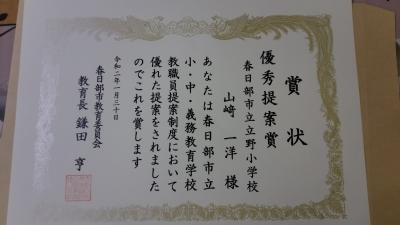 賞状
優秀提案賞
春日部市立立野小学校
山﨑 一洋 様
あなたは春日部市立
小・中・義務教育学校
教職員提案制度において
優れた提案をされました
のでこれを賞します
令和二年一月三十日
春日部市教育委員会
教育長 鎌田 亨